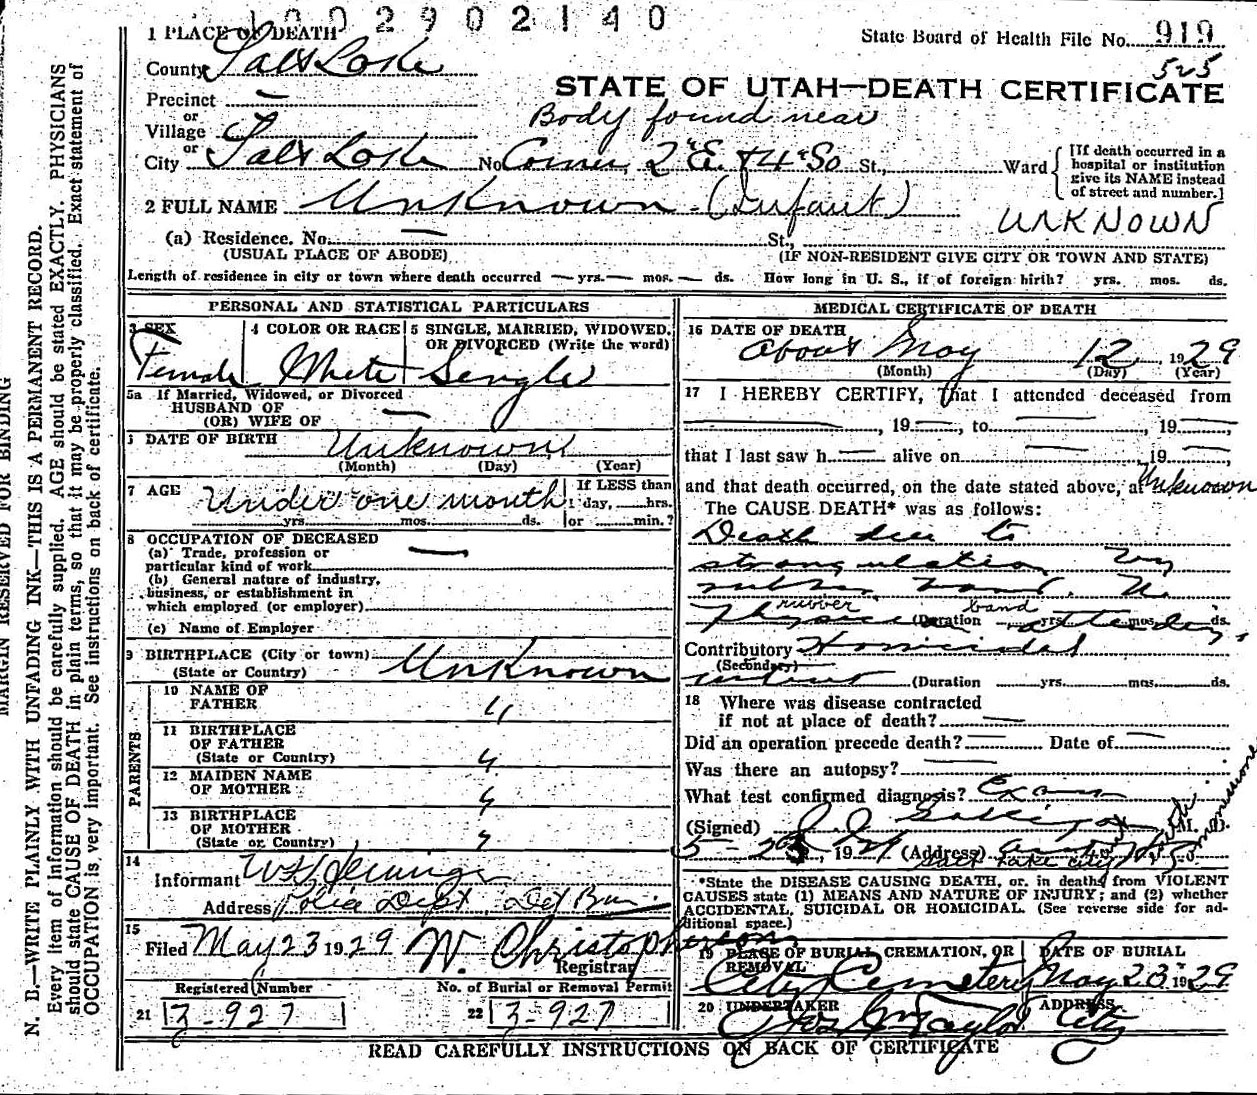 1002902140
1 PLACE OF DEATH
State Board of Health File No. 919
County Salt Lake
525
STATE OF UTAH—DEATH CERTIFICATE
Precinct —
or
Village
Body found near
or
City Salt Lake No. Corner 2 E. & 4 So St., Ward
[If death occurred in a hospital or institution give its NAME instead of street and number.]
2 FULL NAME Unknown (Infant)
UNKNOWN
(a) Residence. No. — St.,
(USUAL PLACE OF ABODE) (IF NON-RESIDENT GIVE CITY OR TOWN AND STATE)
Length of residence in city or town where death occurred — yrs. — mos. — ds. How long in U. S., if of foreign birth? yrs. mos. ds.
PERSONAL AND STATISTICAL PARTICULARS
3 SEX 4 COLOR OR RACE 5 SINGLE, MARRIED, WIDOWED,
OR DIVORCED (Write the word)
Female White Single
5a If Married, Widowed, or Divorced
HUSBAND OF
(OR) WIFE OF —
6 DATE OF BIRTH Unknown
(Month) (Day) (Year)
7 AGE Under one month
If LESS than
1 day, hrs.
yrs. mos. ds. or min.?
8 OCCUPATION OF DECEASED
(a) Trade, profession or
particular kind of work —
(b) General nature of industry,
business, or establishment in
which employed (or employer)
(c) Name of Employer
9 BIRTHPLACE (City or town)
(State or Country) Unknown
PARENTS
10 NAME OF
FATHER "
11 BIRTHPLACE
OF FATHER
(State or Country) "
12 MAIDEN NAME
OF MOTHER "
13 BIRTHPLACE
OF MOTHER
(State or Country) "
14
Informant
Address Police Dept.
15
Filed May 23 1929 W. Christopherson,
Registrar
Registered Number No. of Burial or Removal Permit
21 Z-927 22 Z-927
MEDICAL CERTIFICATE OF DEATH
16 DATE OF DEATH
About May 12 1929
(Month) (Day) (Year)
17 I HEREBY CERTIFY, that I attended deceased from
—, 19—, to —, 19—,
that I last saw h— alive on —, 19—,
and that death occurred, on the date stated above, at Unknown
The CAUSE DEATH* was as follows:
Death due to
strangulation by
rubber band. No
rubber band
Physician (Duration yrs. mos. ds. attending.
Contributory Homicidal
(Secondary)
intent (Duration yrs. mos. ds.
18 Where was disease contracted
if not at place of death? —
Did an operation precede death? — Date of —
Was there an autopsy? —
What test confirmed diagnosis? Exam
(Signed) M. D.
5-23, 1929 (Address) Salt Lake City Commissioner
*State the DISEASE CAUSING DEATH, or, in deaths from VIOLENT
CAUSES state (1) MEANS AND NATURE OF INJURY; and (2) whether
ACCIDENTAL, SUICIDAL OR HOMICIDAL. (See reverse side for ad-
ditional space.)
19 PLACE OF BURIAL CREMATION, OR
REMOVAL
DATE OF BURIAL
City Cemetery May 23 1929
20 UNDERTAKER ADDRESS
Taylor City
READ CAREFULLY INSTRUCTIONS ON BACK OF CERTIFICATE
MARGIN RESERVED FOR BINDING
N. B.—WRITE PLAINLY WITH UNFADING INK—THIS IS A PERMANENT RECORD.
Every item of information should be carefully supplied. AGE should be stated EXACTLY. PHYSICIANS
should state CAUSE OF DEATH in plain terms, so that it may be properly classified. Exact statement of
OCCUPATION is very important. See instructions on back of certificate.